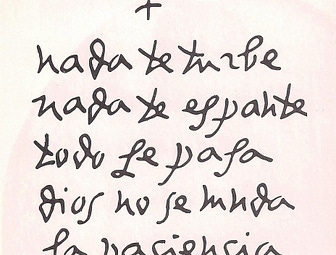 +
nada te turbe
nada te espante
todo se pasa
dios no se muda
la paciencia